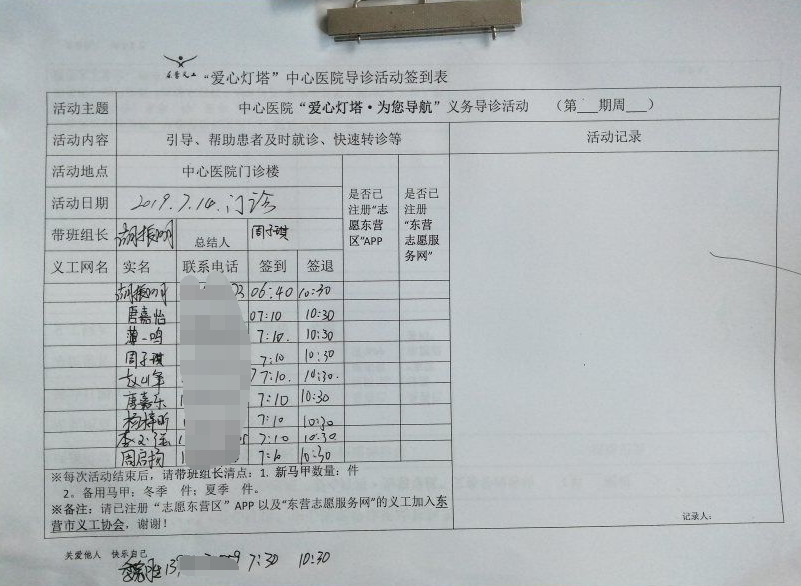 东营义工 “爱心灯塔”中心医院导诊活动签到表
活动主题 中心医院“爱心灯塔·为您导航”义务导诊活动 （第___期周___）
活动内容 引导、帮助患者及时就诊、快速转诊等 活动记录
活动地点 中心医院门诊楼
活动日期 2019.7.14.门诊
是否已注册“志愿东营区”APP
是否已注册“东营志愿服务网”
带班组长 胡振明 总结人 周子琪
义工网名 实名 联系电话 签到 签退
胡振明 06:40 10:30
唐嘉怡 07:10 10:30
薄一鸣 7:10. 10:30
周子琪 7:10 10:30
7:10. 10:30.
唐嘉乐 7:10 10:30
杨梓昕 7:10 10:30
7:10 10:30
周启扬 7:10 10:30
※每次活动结束后，请带班组长清点：1. 新马甲数量： 件
2。备用马甲：冬季 件；夏季 件。
※备注：请已注册“志愿东营区”APP 以及“东营志愿服务网”的义工加入东
营市义工协会，谢谢！
记录人：
关爱他人 快乐自己
13 7:30 10:30